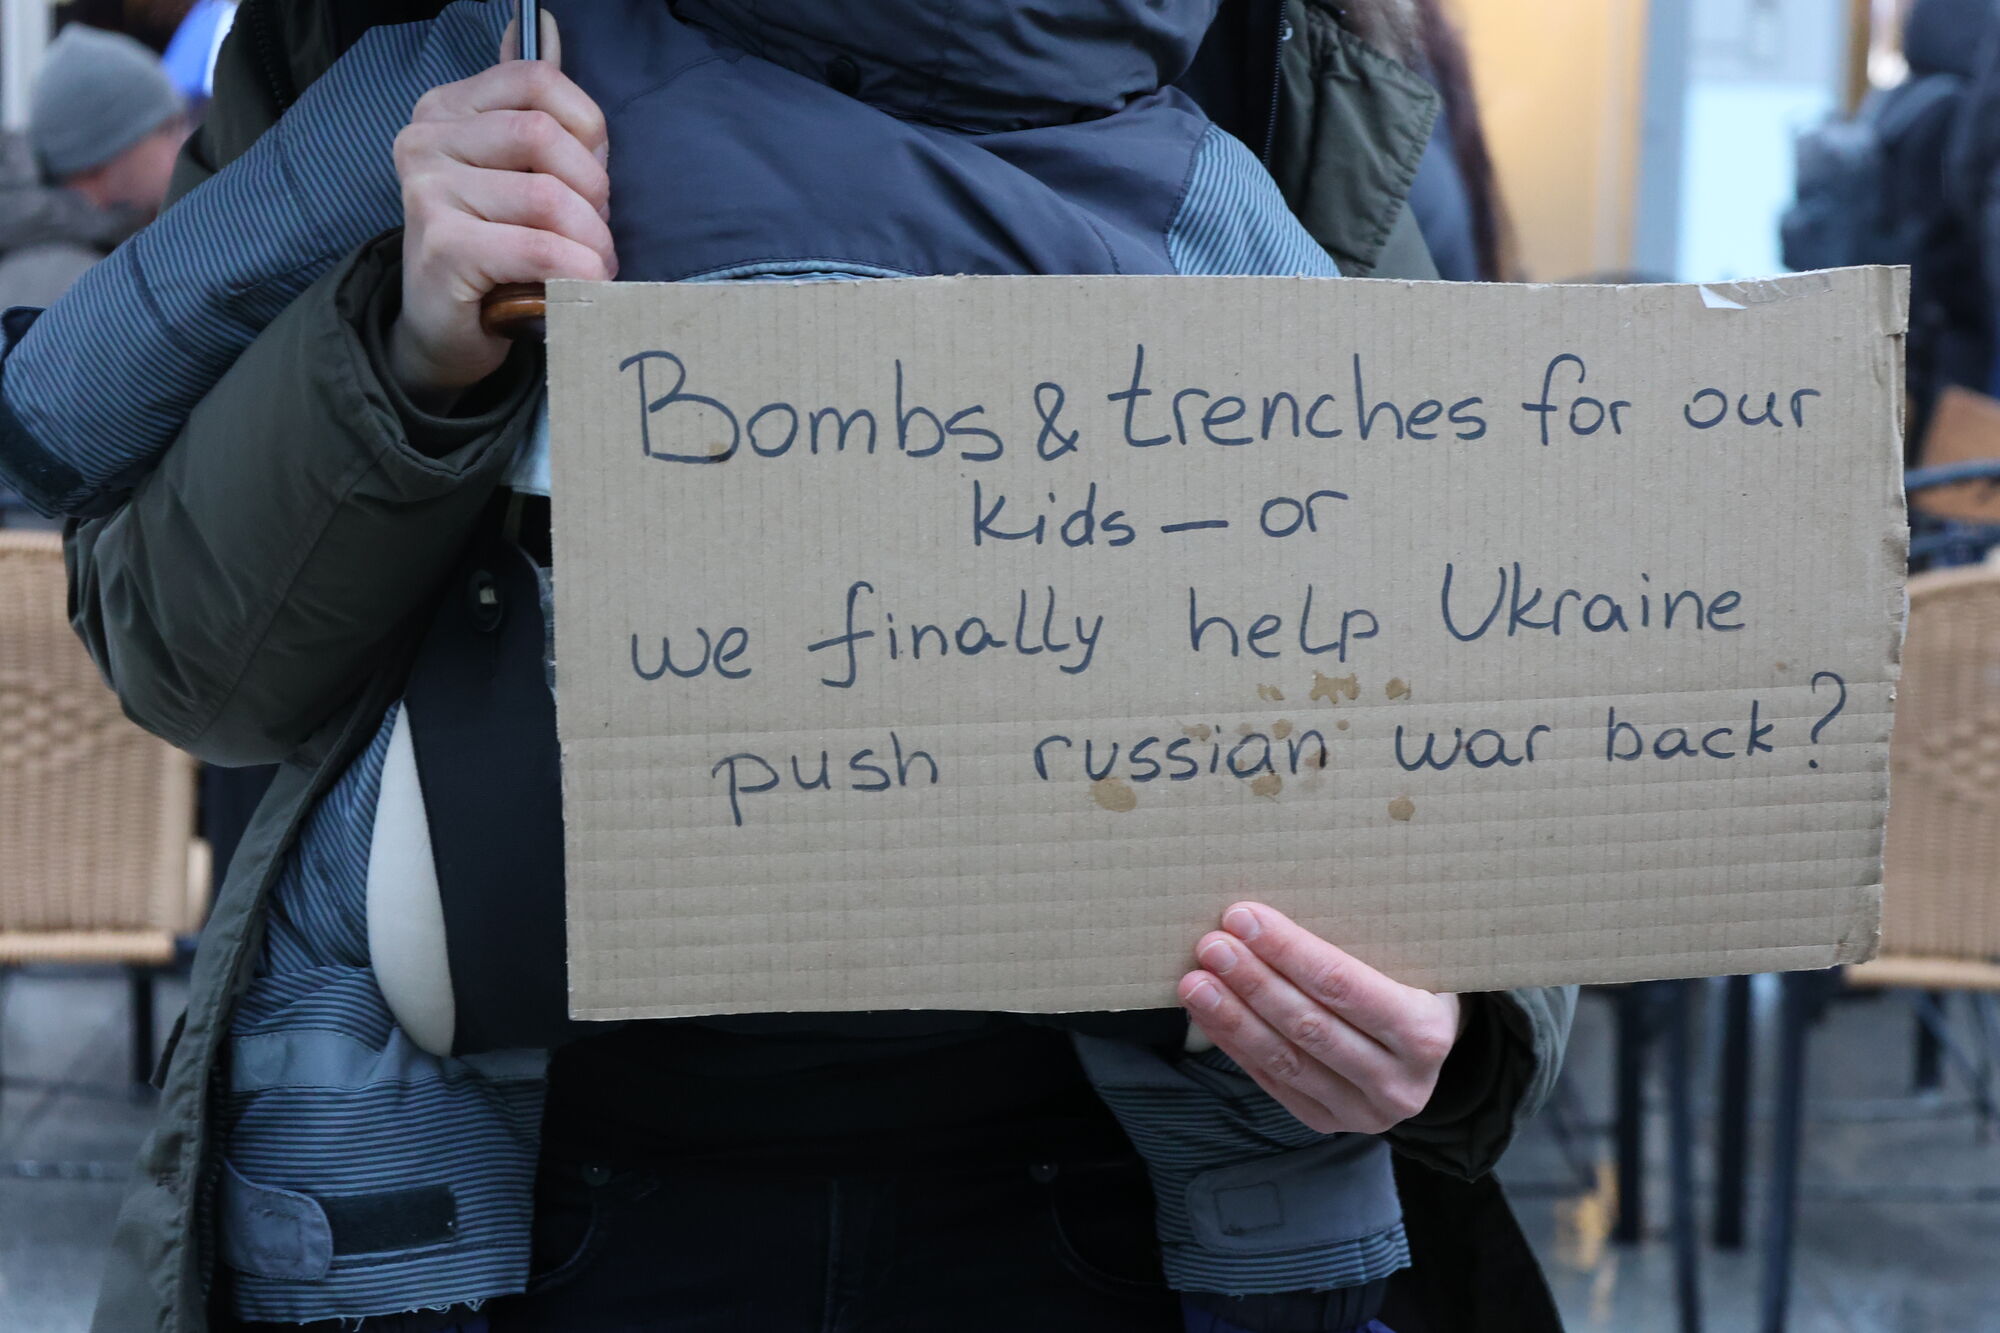 Bombs & trenches for our
kids – or
we finally help Ukraine
push russian war back?